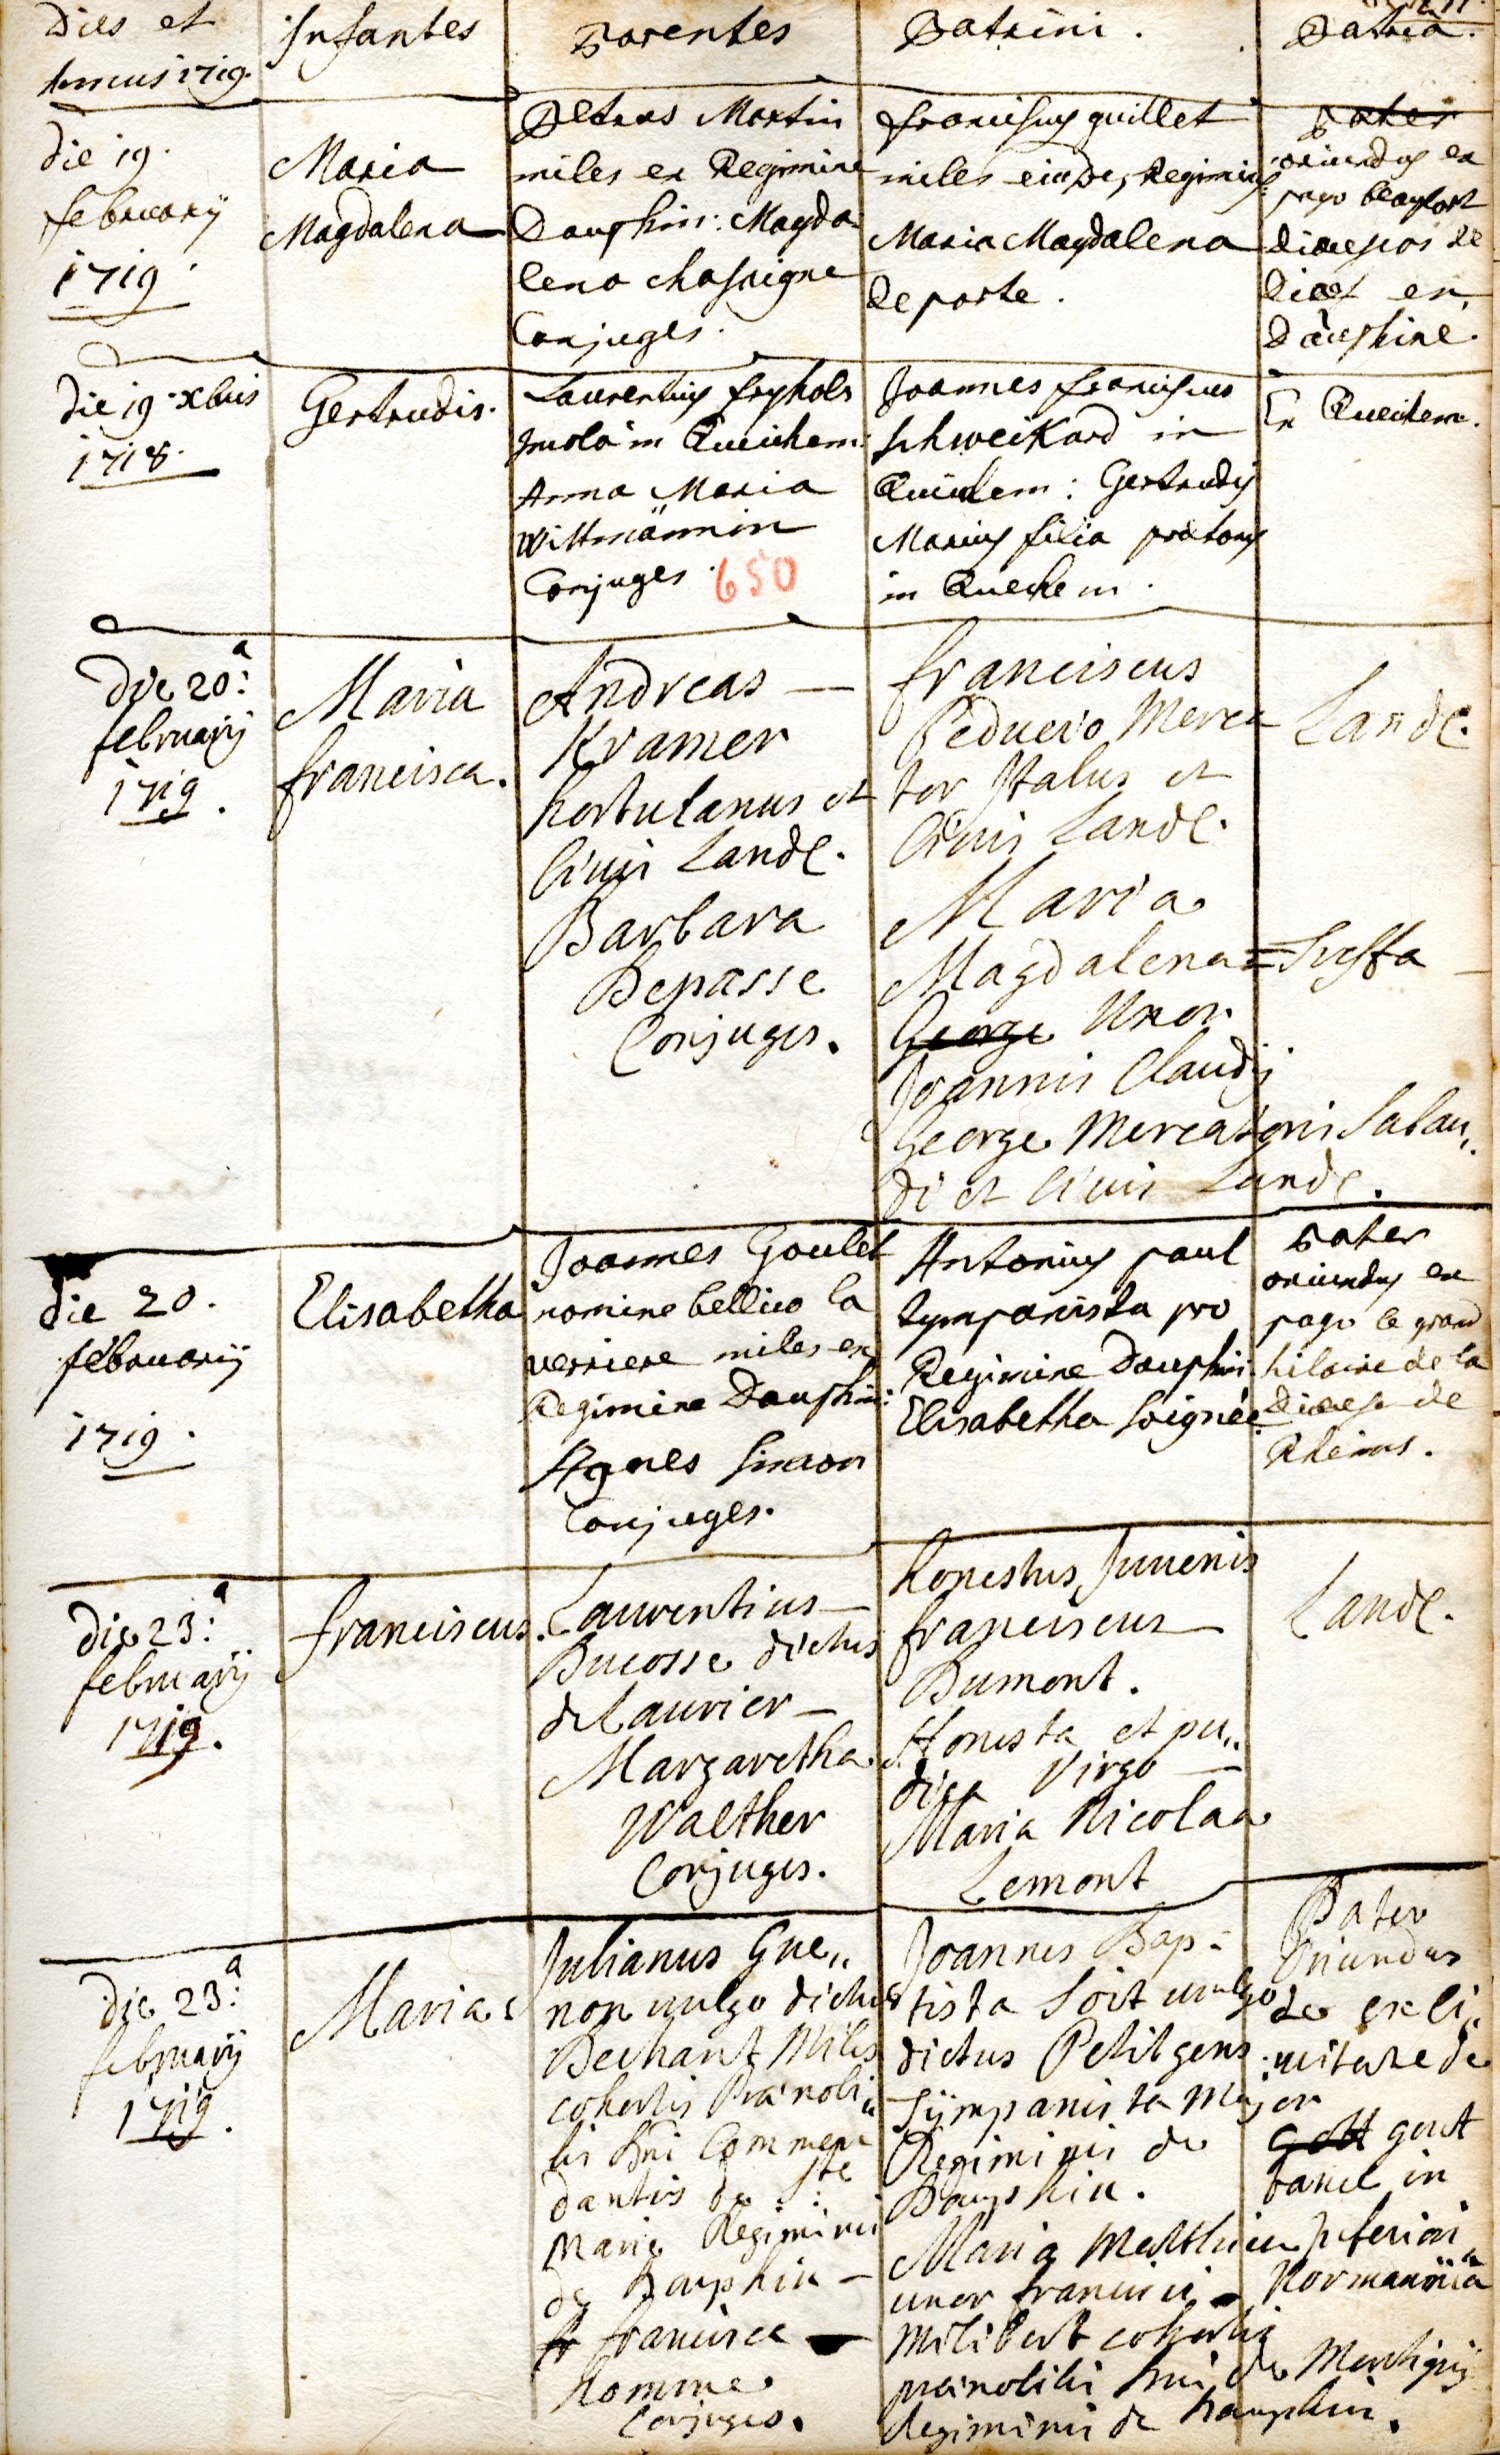 Dies et
Annus 1719.
Infantes
Parentes
Patrini.
Patria.
die 19.
februarij
1719.
Maria
Magdalena
Petrus Martin
miles ex Regimine
Dauphin: Magda
lena chassigne
Conjuges.
franciscus guillet
miles eiusdem Regiminis
Maria Magdalena
deporte.
Pater
oriundus ex
pago beaufort
en
Dauphiné.
die 19 Xbris
1718.
Gertrudis.
Laurentius fryholz
incola in Queichem:
Anna Maria
Wittmännin
Conjuges.
650
Joannes franciscus
schweikard in
Queichem: Gertrudis
Marius filia prætoris
in Queichem.
In Queichem.
die 20:a
februarij
1719.
Maria
francisca.
Andreas —
Kramer
hortulanus et
Civis Landl.
Barbara
Depasse
Conjuges.
franciscus
Peducio Merca
tor Italus et
Civis Landl.
Maria
Magdalena =
George Uxor
Joannis Claudij
George Mercatoris Sabau„
di et Civis Landl.
Landl.
Susta
die 20.
februarij
1719.
Elisabetha
Joannes Goulet
nomine bellico la
verriere miles ex
Regimine Dauphin:
Agnes Simon
Conjuges.
Antonius paul
tympanista pro
Regimine Dauphin.
Elisabetha Soignée
Pater
oriundus ex
pago le grand
hilaire de la
Diœcese de
Rheims.
die 23:a
februarij
1719.
franciscus.
Laurentius —
Ducosse dictus
de Laurier —
Margaretha
Walther
Conjuges.
honestus Juvenis
franciscus
Dumont.
Honesta et pu„
dica Virgo —
Maria Nicolaa
Lemont
Landl.
die 23:a
februarij
1719.
Maria
Julianus Gue„
non vulgo dictus
Dechant Miles
cohortis Prænobi„
lis Dni Commen
dantis de Ste
Marie Regiminis
de Dauphin —
francisca —
homme
Conjuges.
Joannes Bap-
tista Soit vulgo
dictus Petit gens
Tympanista Major
Regiminis de
Dauphin.
Maria Matthieu
uxor francisci
Milibert cohortis
prænobilis Dni de Montigny
Regiminis de Dauphin.
Pater
Oriundus
de ex ci„
vitate de
in
Inferiori
Normannia